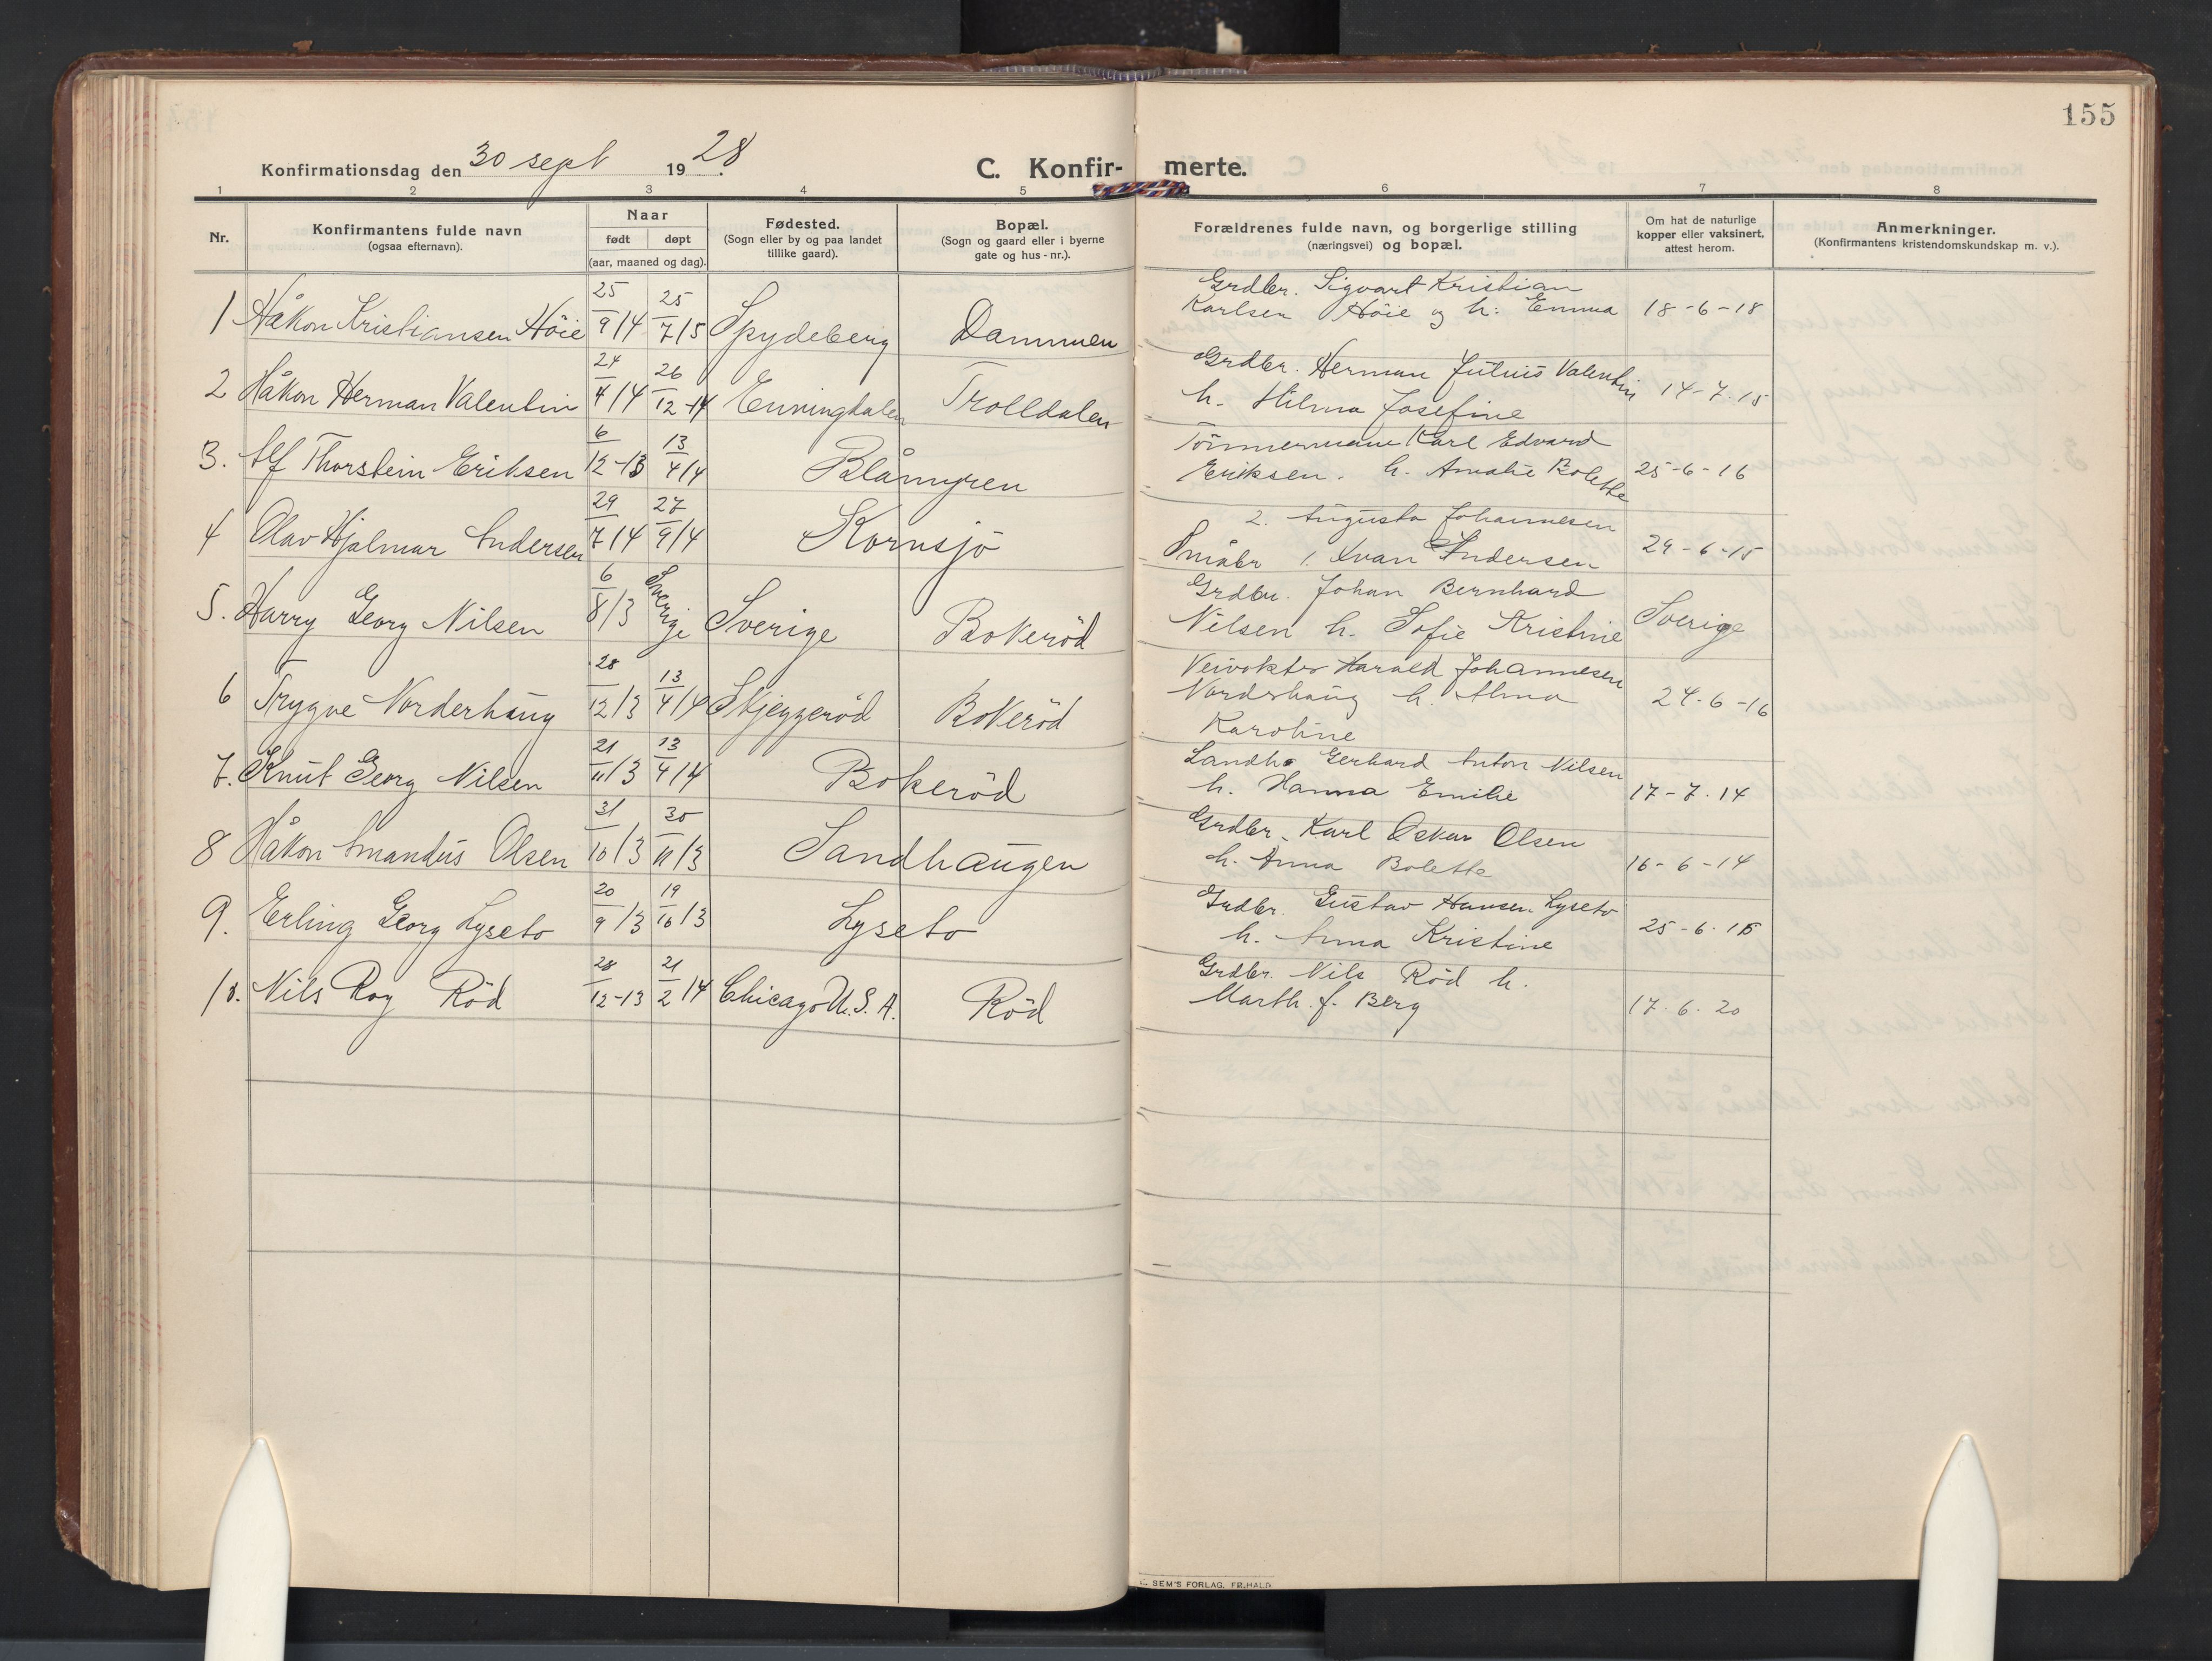 155
Konfirmationsdag den 30 sept 1928.
C. Konfir- merte.
1 2 3 4 5 6 7 8
Nr.
Konfirmantens fulde navn
(ogsaa efternavn).
Naar
født døpt
(aar, maaned og dag).
Fødested.
(Sogn eller by og paa landet
tillike gaard).
Bopæl.
(Sogn og gaard eller i byerne
gate og hus-nr.).
Forældrenes fulde navn, og borgerlige stilling
(næringsvei) og bopæl.
Om hat de naturlige
kopper eller vaksinert,
attest herom.
Anmerkninger.
(Konfirmantens kristendomskundskap m. v.).
1 Håkon Kristiansen Höie 25/9 14 25/7 15 Spydeberg Dammen
Grdbr. Sigvart Kristian
Karlsen Höie og h: Emma 18-6-18
2 Håkon Herman Valentin 24/4 14 26/12-14 Enningdalen Trolldalen
Grdbr. Herman Julius Valentin
h. Hilma Josefine 14-7.15
3. Alf Thorstein Eriksen 6/12-13 13/4 14 Blåmyren
Tömmermann Karl Edvard
Eriksen. h. Amalie Bolette 25-6-16
4 Olav Hjalmar Andersen 29/7 14 27/9 14 Kornsjö
2. Augusta Johannesen
Småbr 1. Ivan Andersen 29-6-15
5. Harry Georg Nilsen 6/8 13 Sverige Sverige Bokeröd
Grdbr. Johan Bernhard
Nilsen h. Sofie Kristine Sverige
6 Trygve Norderhaug 28/12 13 13/4 14 Skjeggeröd Bokeröd
Veivokter Harald Johannesen
Norderhaug h. Alma
Karoline 24-6-16
7. Knut Georg Nilsen 21/11 13 13/4 14 Bokeröd
Landh. Gerhard Anton Nilsen
h. Hanna Emilie 17-7.14
8 Håkon Amandus Olsen 31/10 13 30/11 13 Sandhaugen
Grdbr. Karl Oskar Olsen
h. Anna Bolette 16-6-14
9. Erling Georg Lyseto 20/9 13 19/10 13 Lyseto
Grdbr. Gustav Hansen Lyseto
h. Anna Kristine 25-6.
10. Nils Roy Röd 28/12-13 21/2 14 Chicago U.S.A. Röd
Grdbr. Nils Röd h.
Marth. f. Berg 17.6.20
SEM'S FORLAG, FR.HALD